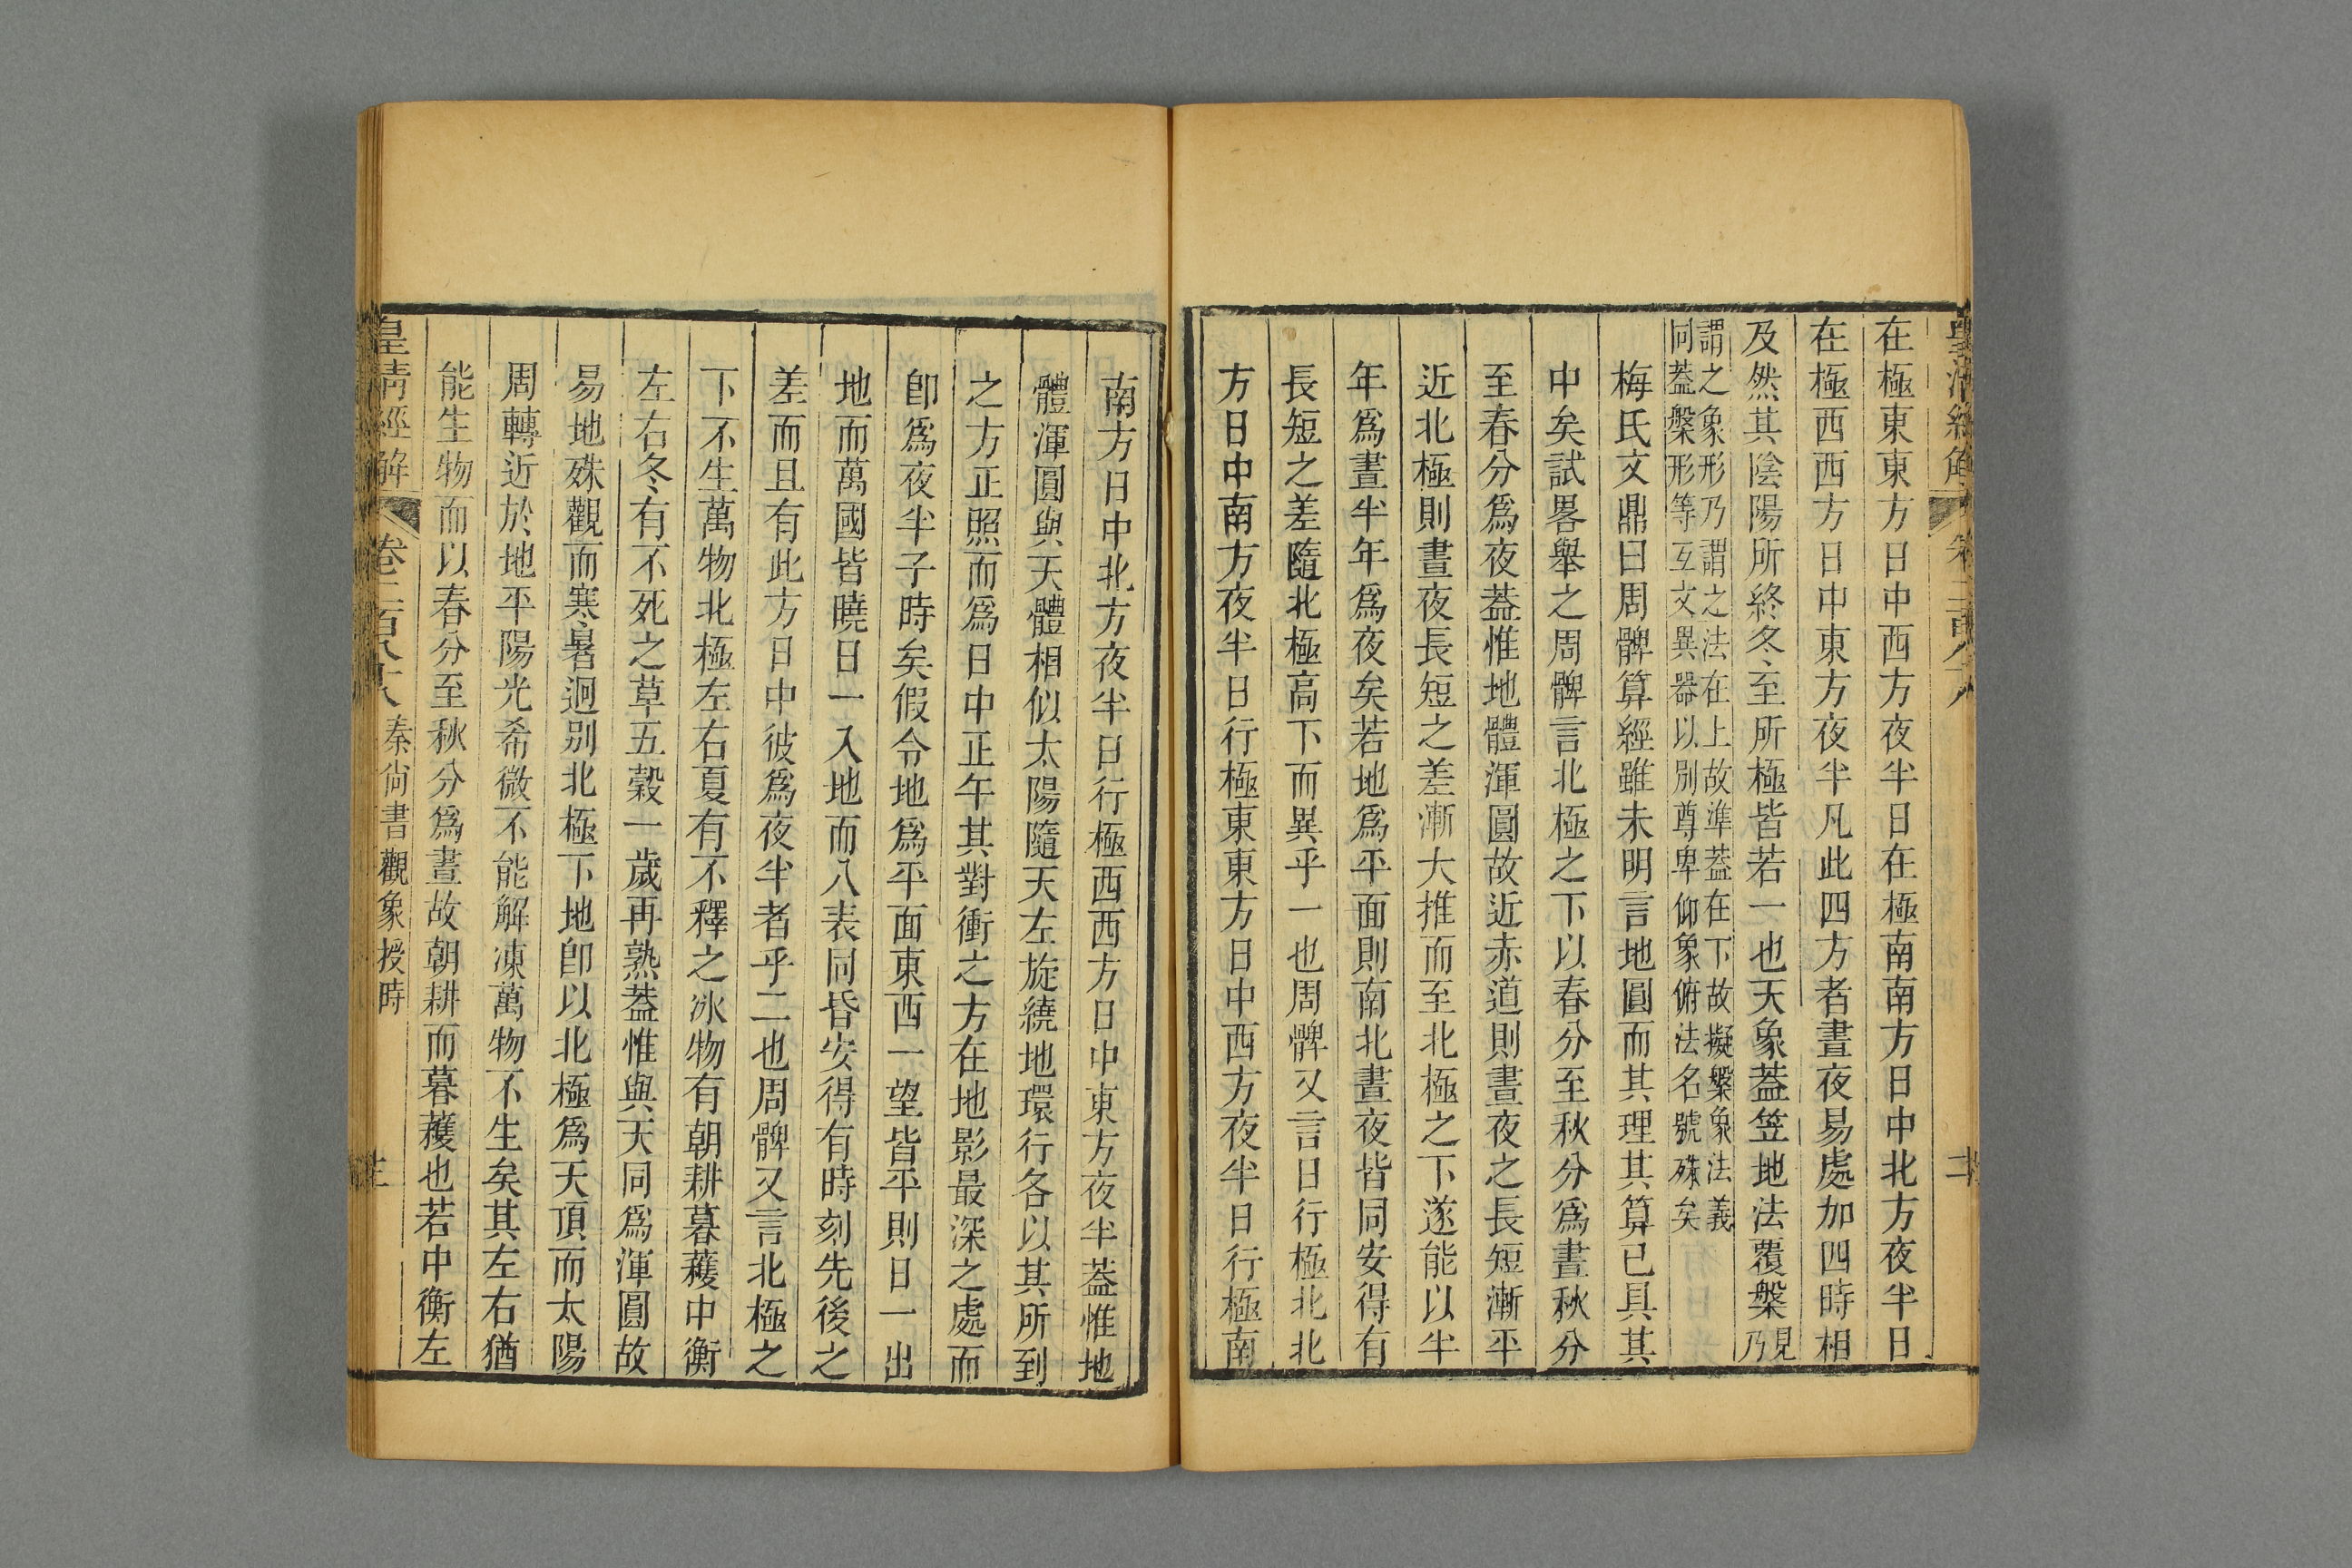 在極東東方日中西方夜半日在極南南方日中北方夜半日
在極西西方日中東方夜半凡此四方者晝夜易處加四時相
及然其陰陽所終冬至所極皆若一也天象蓋笠地法覆槃見乃
謂之象形乃謂之法在上故準蓋在下故擬槃象法義
同蓋槃形等互文異器以別尊卑仰象俯法名號殊矣
梅氏文鼎曰周髀算經雖未明言地圓而其理其算已具其
中矣試畧舉之周髀言北極之下以春分至秋分爲晝秋分
至春分爲夜蓋惟地體渾圓故近赤道則晝夜之長短漸平
近北極則晝夜長短之差漸大推而至北極之下遂能以半
年爲晝半年爲夜矣若地爲平面則南北晝夜皆同安得有
長短之差隨北極高下而異乎一也周髀又言日行極北北
方日中南方夜半日行極東東方日中西方夜半日行極南
南方日中北方夜半日行極西西方日中東方夜半蓋惟地
體渾圓與天體相似太陽隨天左旋繞地環行各以其所到
之方正照而爲日中正午其對衝之方在地影最深之處而
卽爲夜半子時矣假令地爲平面東西一望皆平則日一出
地而萬國皆曉日一入地而八表同昏安得有時刻先後之
差而且有此方日中彼爲夜半者乎二也周髀又言北極之
下不生萬物北極左右夏有不釋之冰物有朝耕暮穫中衡
左右冬有不死之草五穀一歲再熟蓋惟與天同爲渾圓故
易地殊觀而寒暑迥別北極下地卽以北極爲天頂而太陽
周轉近於地平陽光希微不能解凍萬物不生矣其左右猶
能生物而以春分至秋分爲晝故朝耕而暮穫也若中衡左
皇清經解 秦尙書觀象授時